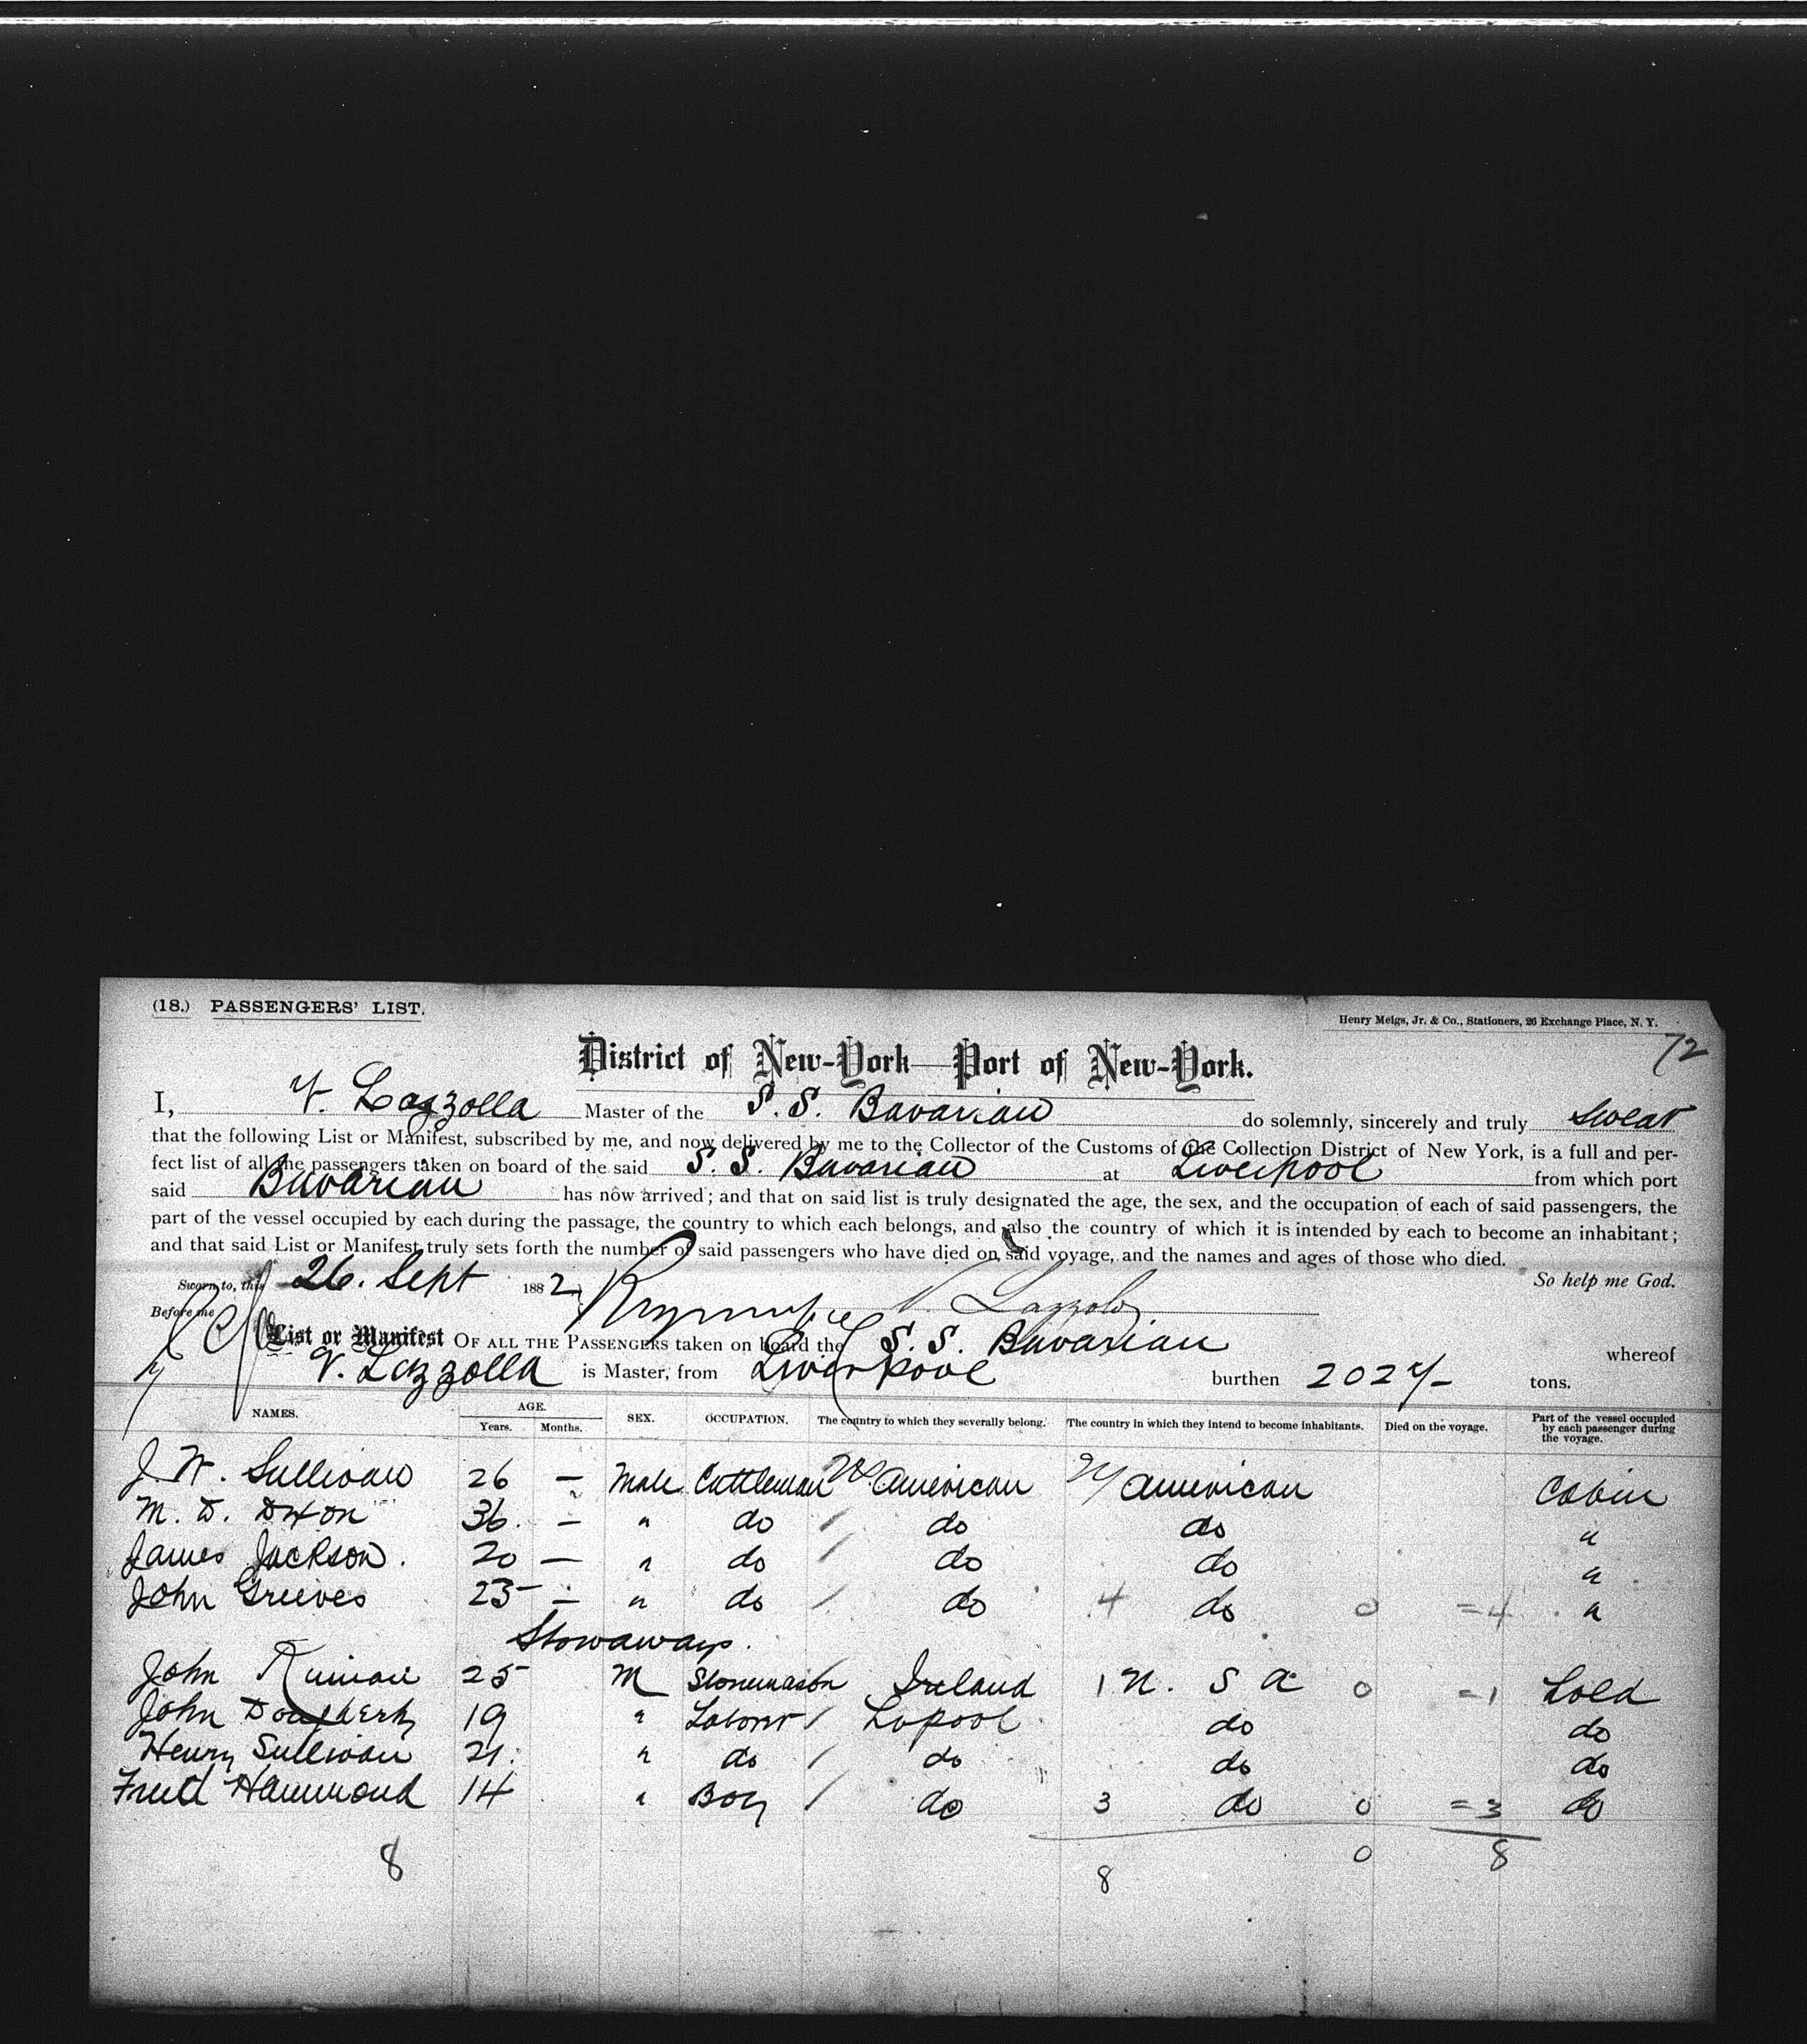 (18.) PASSENGERS' LIST.
Henry Meigs, Jr. & Co., Stationers, 26 Exchange Place, N. Y.
72
District of New-York—Port of New-York.
I, V. Lazzolla Master of the S. S. Bavarian do solemnly, sincerely and truly swear
that the following List or Manifest, subscribed by me, and now delivered by me to the Collector of the Customs of the Collection District of New York, is a full and per-
fect list of all the passengers taken on board of the said S. S. Bavarian at Liverpool from which port
said Bavarian has now arrived; and that on said list is truly designated the age, the sex, and the occupation of each of said passengers, the
part of the vessel occupied by each during the passage, the country to which each belongs, and also the country of which it is intended by each to become an inhabitant;
and that said List or Manifest truly sets forth the number of said passengers who have died on said voyage, and the names and ages of those who died.
So help me God.
Sworn to, this 26. Sept 1882 V. Lazzolo
Before me
List or Manifest OF ALL THE PASSENGERS taken on board the S. S. Bavarian whereof
V. Lazzolla is Master, from Liverpool burthen 2027 tons.
NAMES. AGE. Years. Months. SEX. OCCUPATION. The country to which they severally belong. The country in which they intend to become inhabitants. Died on the voyage. Part of the vessel occupied by each passenger during the voyage.
J. W. Sullivan 26 — Male Cattleman American American Cabin
M. D. Dixon 36 — " do do do "
James Jackson. 20 — " do do do "
John Greeves 25 — " do do 4 do 0 =4 "
Stowaways.
John 25 M Stonemason Ireland 1 U. S A 0 =1 hold
John Dougherty 19 " Laborer Lpool do do
Henry Sullivan 21. " do do do do
Fred Hammond 14 " Boy do 3 do 0 =3 do
8 8 0 8